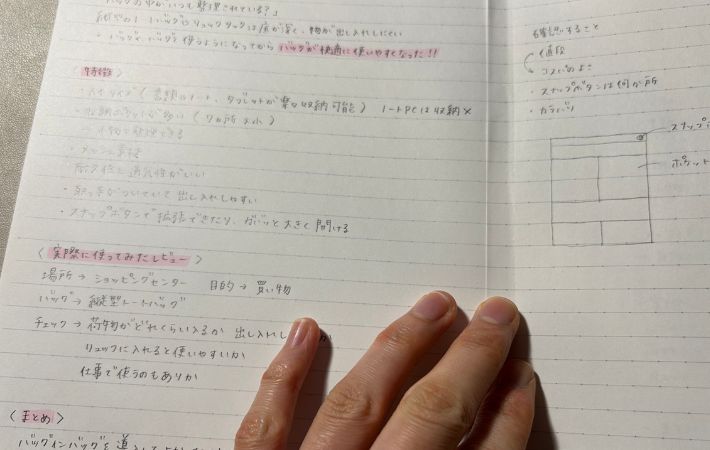 バッグの中がいつも整理されている?」
バッグやリュックサックは底が深く、物が出し入れしにくい
・バッグインバッグを使うようになってから バッグが快適に使いやすくなった!!
〈特徴〉
・A4サイズ(書類やノート、タブレットが楽々収納可能) ノートPCは収納×
・収納ポケットが多い(7ヵ所 大小)
小物も整理できる
・メッシュ素材
耐久性と通気性がいい
・取っ手がついていて出し入れしやすい
・スナップボタンで拡張できたり、ガバッと大きく開ける
〈実際に使ってみたレビュー〉
場所→ショッピングセンター 目的→買い物
バッグ→縦型トートバッグ
チェック→荷物がどれくらい入るか 出し入れし
リュックに入れると使いやすいか
仕事で使うのもありか
〈まとめ〉
バッグインバッグを
確認すること
・値段
コスパのよさ
・スナップボタンは何か所
・カラバリ
スナップ
ポケット